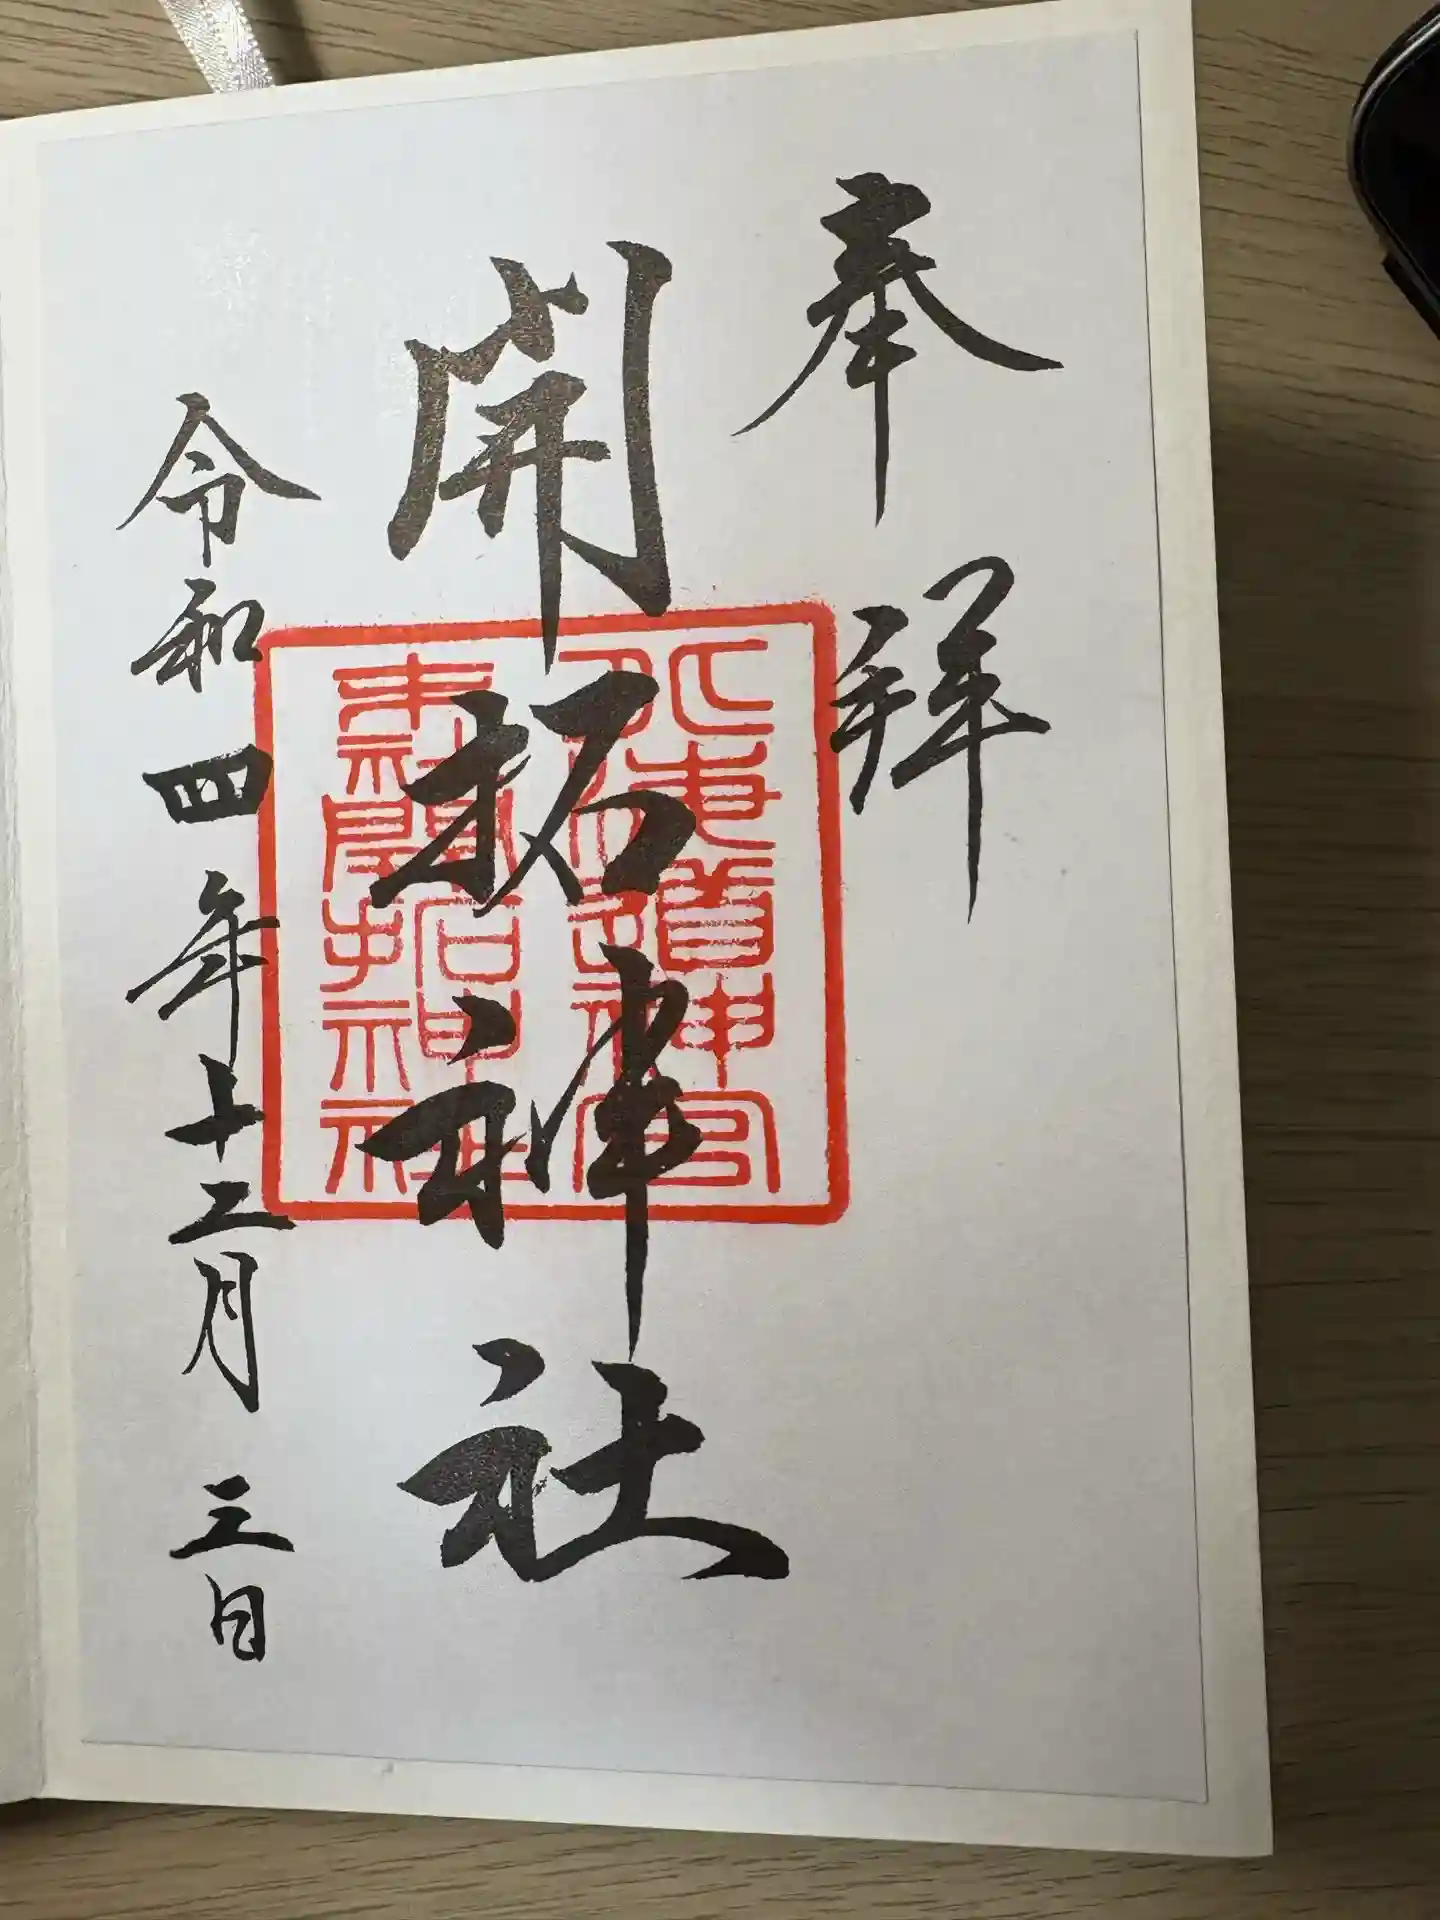 奉拝
開拓神社
北海道神宮
末社開拓神社
令和四年十二月三日